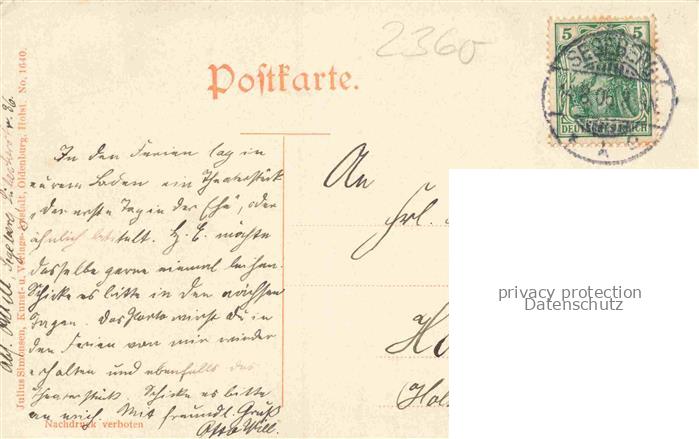 2360
5
SEGEBERG
DEUTSCHES REICH
Postkarte.
In den Ferien lag in
eurem Laden ein Theaterstück
„Der erste Tag in der Ehe", oder
ähnlich betitelt. H. E. möchte
dasselbe gerne einmal leihen.
Schicke es bitte in den nächsten
Tagen. Das Porto wirst du in
den Ferien von mir wieder
erhalten und ebenfalls das
Theaterstück. Schicke es bitte
an mich. Mit freundl. Gruß
Otto Will.
Nachdruck verboten
Julius Simonsen, Kunst- u. Verlags-Anstalt, Oldenburg, Holst. No. 1640.
Abs. Segeberg
An
Frl.
Holst
privacy protection
Datenschutz